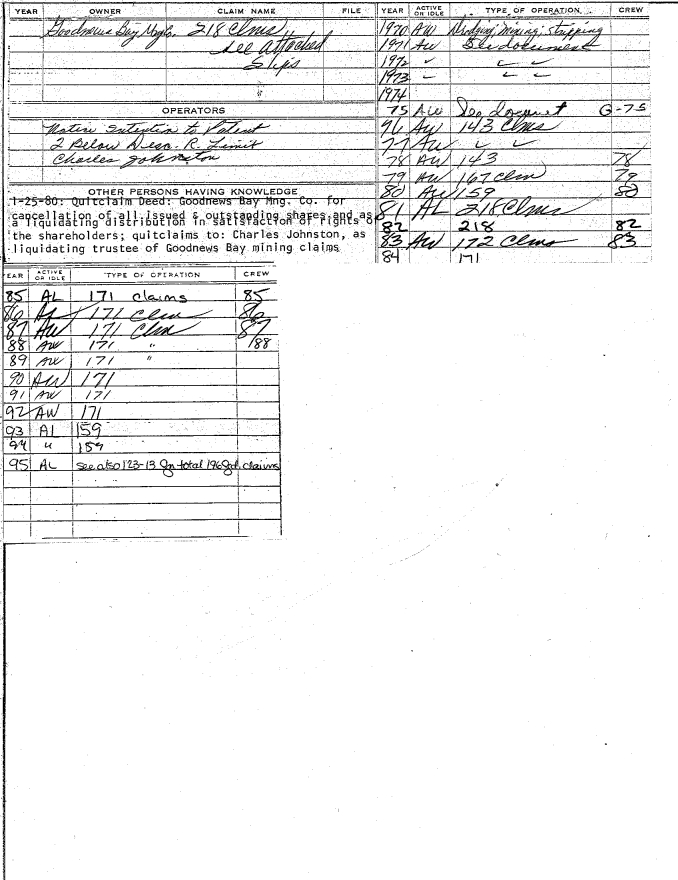 YEAR OWNER CLAIM NAME FILE
Goodnews Bay Mng Co. 218 Clms
See Attached
Slips
OPERATORS
Notice Intention to Patent
2 Below Desc. R. Limit
Charles Johnston
OTHER PERSONS HAVING KNOWLEDGE
1-25-80: Quitclaim Deed: Goodnews Bay Mng. Co. for
cancellation of all issued & outstanding shares and as
a liquidating distribution in satisfaction of rights of
the shareholders; quitclaims to: Charles Johnston, as
liquidating trustee of Goodnews Bay mining claims
YEAR ACTIVE OR IDLE TYPE OF OPERATION CREW
1970 AW Dredging, mining, stripping
1971 AW See document
1972 ✓ ✓ ✓
1973 ✓ ✓ ✓
1974
75 AW See G-75
76 AW 143 Clms
77 AW ✓ ✓
78 AW 143 78
79 AW 167 Clm 79
80 AW 159 80
81 AL 218 Clms
82 218 82
83 AW 172 Clms 83
84 171
YEAR ACTIVE OR IDLE TYPE OF OPERATION CREW
85 AL 171 claims 85
86 AL 171 Clm 86
87 AW 171 Clm 87
88 AW 171 " 88
89 AW 171 "
90 AW 171
91 AW 171
92 AW 171
93 AL 159
94 " 159
95 AL See also 123-13 total 196 claims